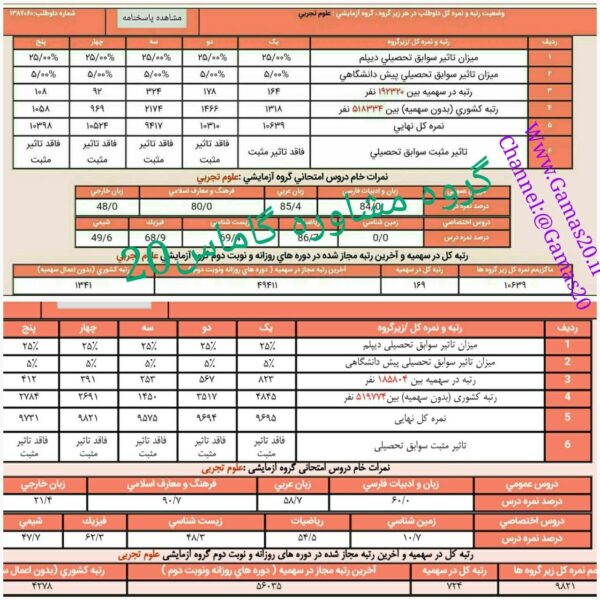 وضعيت رتبه و نمره كل داوطلب در هر زير گروه ، گروه آزمايشي: علوم تجربي
مشاهده پاسخنامه
شماره داوطلب: ۱۳۸۷۰۶۰
رديف رتبه و نمره كل /زيرگروه يك دو سه چهار پنج
۱ ميزان تاثير سوابق تحصيلي ديپلم ۲۵/۰۰% ۲۵/۰۰% ۲۵/۰۰% ۲۵/۰۰% ۲۵/۰۰%
۲ ميزان تاثير سوابق تحصيلي پيش دانشگاهي ۵/۰۰% ۵/۰۰% ۵/۰۰% ۵/۰۰% ۵/۰۰%
۳ رتبه در سهميه بين ۱۹۲۳۲۰ نفر ۱۶۴ ۱۷۸ ۳۲۴ ۹۲ ۱۰۸
۴ رتبه كشوري (بدون سهميه) بين ۵۱۸۳۳۴ نفر ۱۳۱۸ ۱۴۶۶ ۲۱۷۴ ۹۶۹ ۱۰۵۸
۵ نمره كل نهايي ۱۰۶۳۹ ۱۰۳۱۰ ۹۴۱۷ ۱۰۵۲۴ ۱۰۳۹۸
تاثير مثبت سوابق تحصيلي فاقد تاثير مثبت فاقد تاثير مثبت فاقد تاثير مثبت فاقد تاثير مثبت فاقد تاثير مثبت
نمرات خام دروس امتحاني گروه آزمايشي: علوم تجربي
زبان و ادبيات فارسي زبان عربي فرهنگ و معارف اسلامي زبان خارجي
درصد نمره درس 84/0 85/4 80/0 48/0
دروس اختصاصي زمين شناسي زيست شناسي فيزيك شيمي
درصد نمره درس 0/0 68/9 49/6
رتبه كل در سهميه و آخرين رتبه مجاز شده در دوره هاي روزانه و نوبت دوم گروه آزمايشي علوم تجربي
ماكزيمم نمره كل زير گروه ها رتبه كل در سهميه آخرين رتبه مجاز در سهميه ( دوره هاي روزانه ونوبت دوم ) رتبه كشوري (بدون اعمال سهميه)
۱۰۶۳۹ ۱۶۹ ۴۹۴۱۱ ۱۳۴۱
گروه مشاوره گاماس20
www.Gamas20.ir
Channel:@Gamas20
رديف رتبه و نمره كل /زيرگروه يك دو سه چهار پنج
1 ميزان تاثير سوابق تحصيلي ديپلم ۲۵% ۲۵% ۲۵% ۲۵% ۲۵%
2 ميزان تاثير سوابق تحصيلي پيش دانشگاهي ۵% ۵% ۵% ۵% ۵%
3 رتبه در سهميه بين ۱۸۵۸۰۴ نفر ۸۲۳ ۵۶۷ ۲۵۳ ۳۹۱ ۴۱۲
4 رتبه كشوري (بدون سهميه) بين ۵۱۹۷۷۴ نفر ۴۸۴۵ ۳۵۱۷ ۱۴۵۰ ۲۶۹۱ ۲۷۸۴
5 نمره كل نهايي ۹۶۹۵ ۹۶۹۴ ۹۵۷۵ ۹۸۲۱ ۹۷۳۱
6 تاثير مثبت سوابق تحصيلي فاقد تاثير مثبت فاقد تاثير مثبت فاقد تاثير مثبت فاقد تاثير مثبت فاقد تاثير مثبت
نمرات خام دروس امتحاني گروه آزمايشي :علوم تجربي
دروس عمومي زبان و ادبيات فارسي زبان عربي فرهنگ و معارف اسلامي زبان خارجي
درصد نمره درس ۶۰/۰ ۵۸/۷ ۹۰/۷ ۲۱/۴
دروس اختصاصي زمين شناسي رياضيات زيست شناسي فيزيك شيمي
درصد نمره درس ۱۰/۷ ۵۴/۵ ۴۸/۳ ۶۲/۳ ۴۷/۷
رتبه كل در سهميه و آخرين رتبه مجاز شده در دوره هاي روزانه و نوبت دوم گروه آزمايشي علوم تجربي
نمره كل زير گروه ها رتبه كل در سهميه آخرين رتبه مجاز در سهميه ( دوره هاي روزانه ونوبت دوم ) رتبه كشوري (بدون اعمال
۹۸۲۱ ۷۲۴ ۵۶۰۳۵ ۴۲۷۸